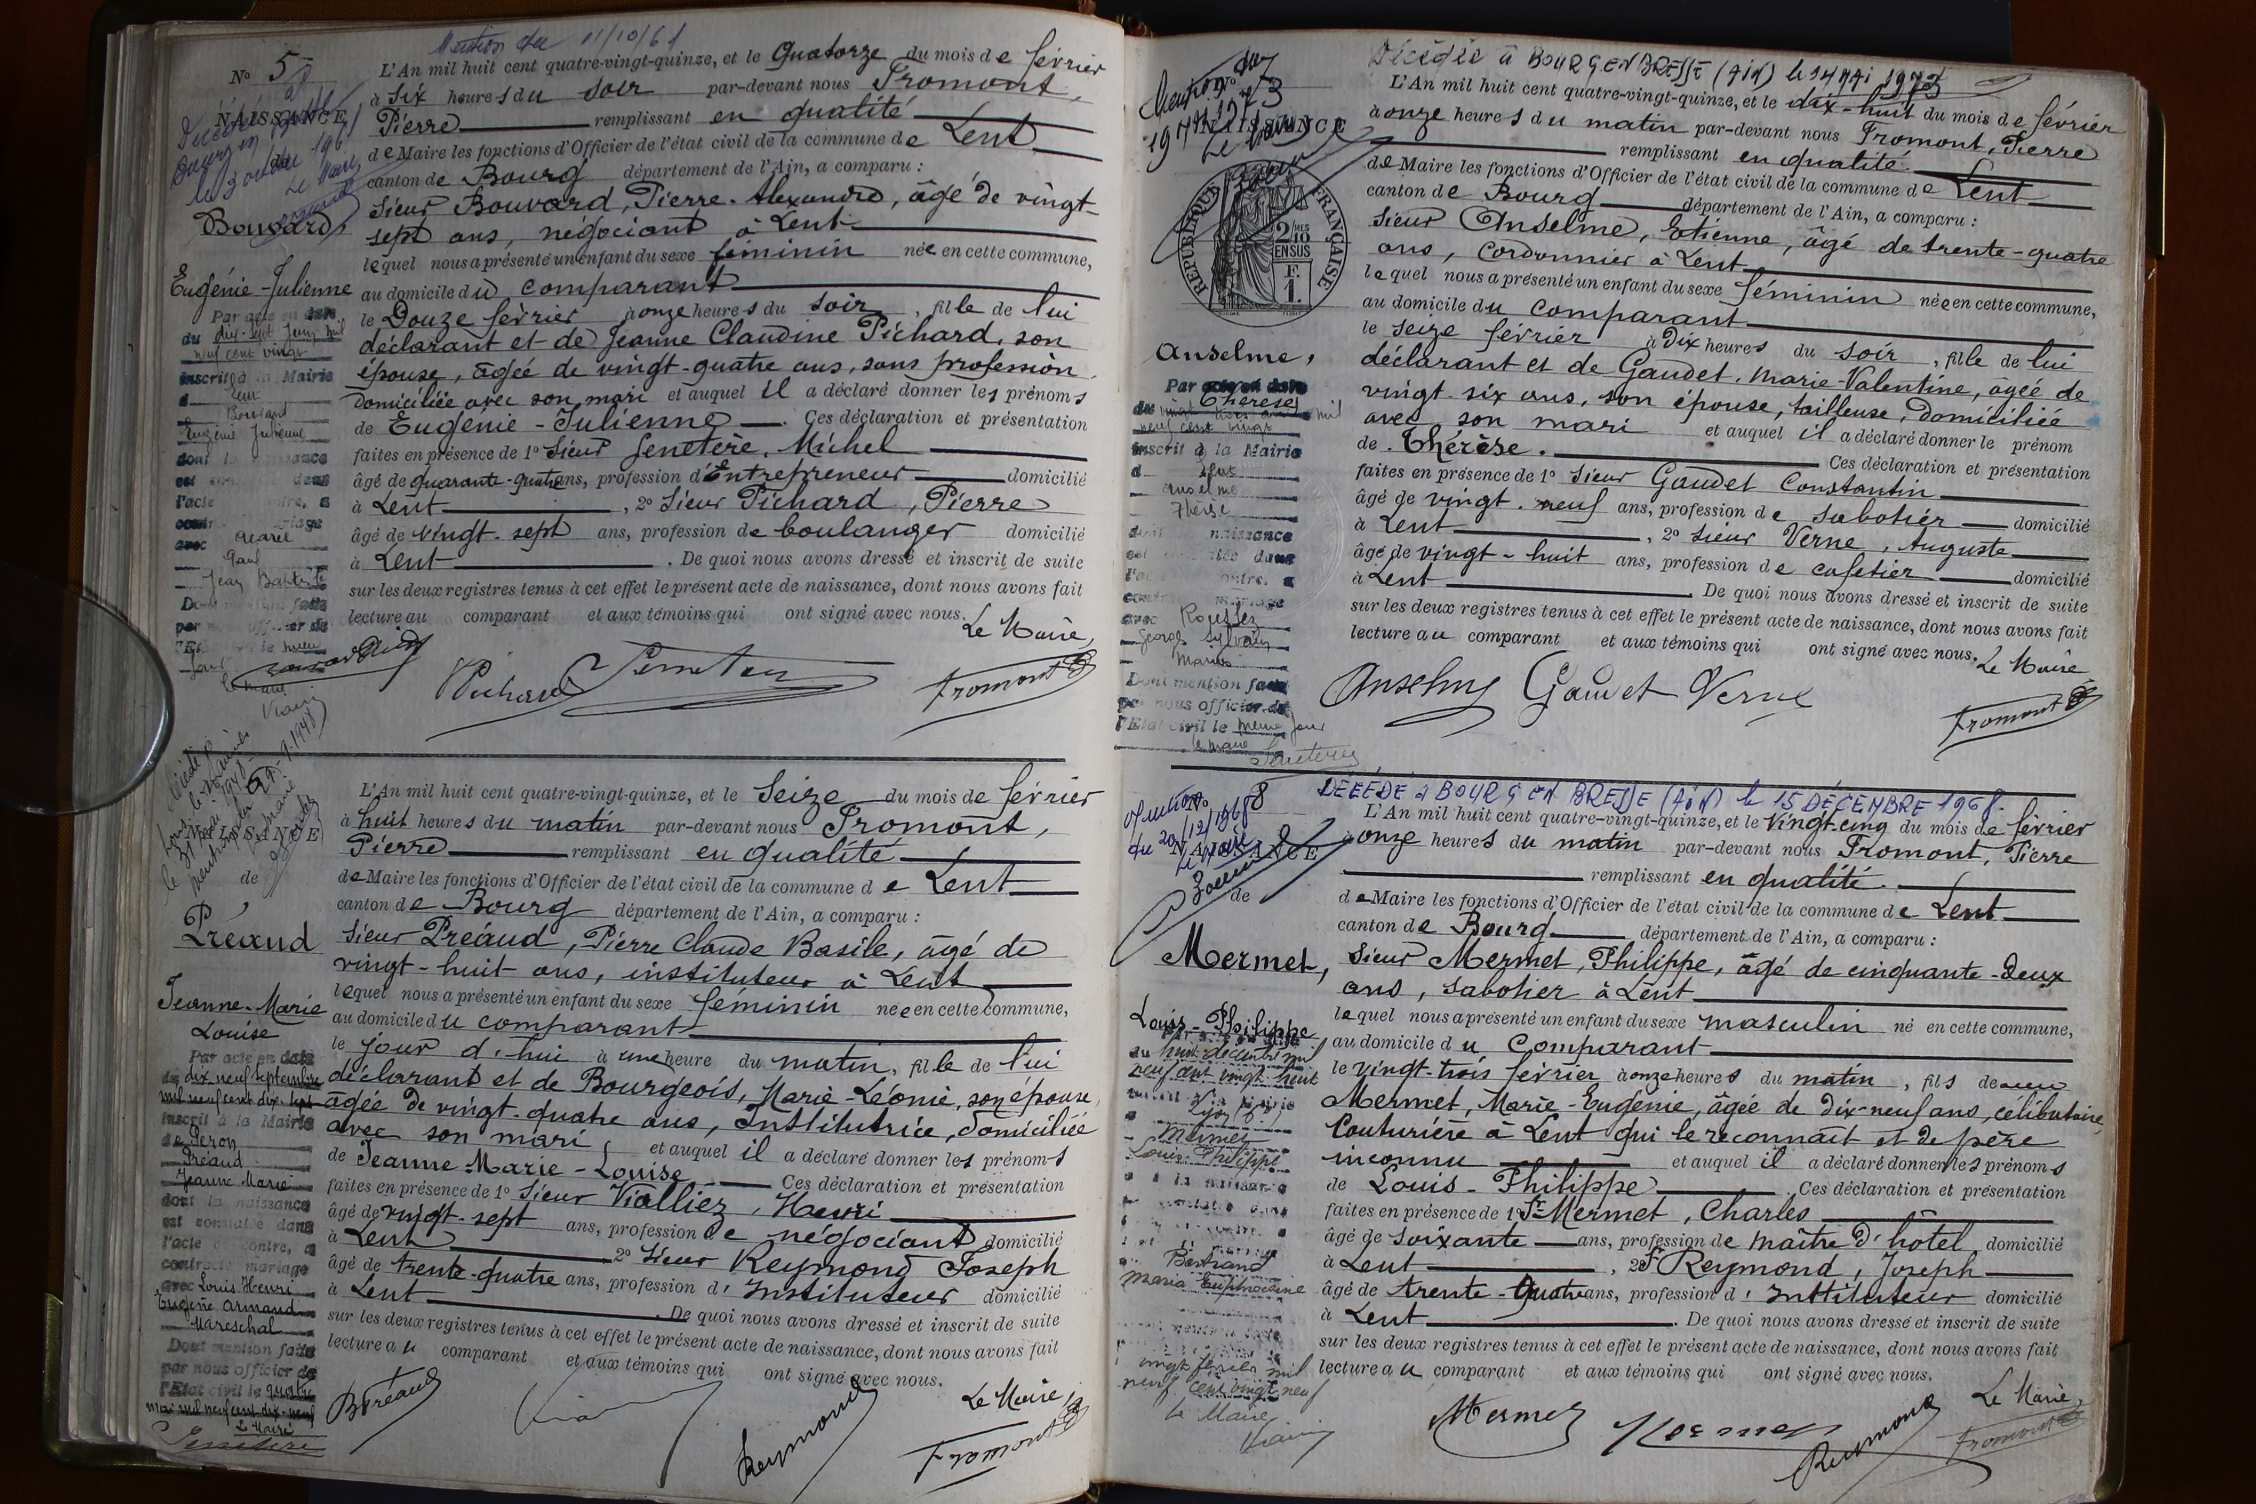 Mention du 11/10/61
N° 5
NAISSANCE
de
Bouvard,
Eugénie-Julienne
Par acte en date
du dix-sept Juin mil
neuf cent vingt
inscrit à la Mairie
d Lent
Bouvard
Eugénie Julienne
dont la naissance
est dans
l'acte contre, a
contr mariage
avec
Paul
Jean Baptiste
Dont mention faite
par officier de
l'Et le même
Jour
Le Maire
L'An mil huit cent quatre-vingt-quinze, et le Quatorze du mois de février
à Six heures du soir par-devant nous Fromont,
Pierre remplissant en qualité
de Maire les fonctions d'Officier de l'état civil de la commune de Lent
canton de Bourg département de l'Ain, a comparu :
Sieur Bouvard, Pierre-Alexandre, âgé de vingt-
sept ans, négociant à Lent
lequel nous a présenté un enfant du sexe féminin née en cette commune,
au domicile du comparant
le Douze février à onze heures du soir, fille de lui
déclarant et de Jeanne Claudine Pichard, son
épouse, âgée de vingt-quatre ans, sans profession,
domiciliée avec son mari et auquel il a déclaré donner les prénoms
de Eugénie-Julienne. Ces déclaration et présentation
faites en présence de 1° Sieur Genetère, Michel
âgé de quarante-quatre ans, profession d'Entrepreneur domicilié
à Lent, 2° Sieur Pichard, Pierre
âgé de vingt-sept ans, profession de boulanger domicilié
à Lent. De quoi nous avons dressé et inscrit de suite
sur les deux registres tenus à cet effet le présent acte de naissance, dont nous avons fait
lecture au comparant et aux témoins qui ont signé avec nous.
Le Maire,
Pichard Fromont
NAISSANCE
de
Préaud
Jeanne-Marie
Louise
Par acte en date
du dix neuf septembre
mil neuf cent dix-sept
inscrit à la Mairie
de Peron
Préaud
Jeanne Marie
dont la naissance
est constatée dans
l'acte ci-contre, a
contracté mariage
avec Louis Henri
Eugène Armand
Mareschal
Dont mention faite
par nous officier de
l'Etat civil le quatre
mai mil neuf cent dix-neuf
Le Maire
L'An mil huit cent quatre-vingt-quinze, et le Seize du mois de février
à huit heures du matin par-devant nous Fromont,
Pierre remplissant en qualité
de Maire les fonctions d'Officier de l'état civil de la commune de Lent
canton de Bourg département de l'Ain, a comparu :
Sieur Préaud, Pierre Claude Basile, âgé de
vingt-huit ans, instituteur à Lent
lequel nous a présenté un enfant du sexe féminin née en cette commune,
au domicile du comparant
le jour d'hui à une heure du matin, fille de lui
déclarant et de Bourgeois, Marie-Léonie, son épouse,
âgée de vingt-quatre ans, Institutrice, domiciliée
avec son mari et auquel il a déclaré donner les prénoms
de Jeanne-Marie-Louise. Ces déclaration et présentation
faites en présence de 1° Sieur Vialliez, Henri
âgé de vingt-sept ans, profession de négociant domicilié
à Lent 2° Sieur Reymond Joseph
âgé de trente-quatre ans, profession d'Instituteur domicilié
à Lent. De quoi nous avons dressé et inscrit de suite
sur les deux registres tenus à cet effet le présent acte de naissance, dont nous avons fait
lecture au comparant et aux témoins qui ont signé avec nous.
Le Maire
BPréaud Reymond Fromont
Décédée à BOURG EN BRESSE (AIN) le 14 MAI 1973
NAISSANCE
RÉPUBLIQUE FRANÇAISE
2/10 EN SUS
F. 1.
Anselme,
Thérèse
Par acte en date
du vingt trois mil
neuf cent vingt
inscrit à la Mairie
d Lent
Anselme
Thérèse
naissance
dans
mariage
avec Rousset
Georges Sylvain
Marius
Dont mention faite
par nous officier de
l'Etat civil le même jour
le maire
L'An mil huit cent quatre-vingt-quinze, et le dix-huit du mois de février
à onze heures du matin par-devant nous Fromont, Pierre
remplissant en qualité
de Maire les fonctions d'Officier de l'état civil de la commune de Lent
canton de Bourg département de l'Ain, a comparu :
Sieur Anselme, Etienne, âgé de trente-quatre
ans, cordonnier à Lent
lequel nous a présenté un enfant du sexe féminin née en cette commune,
au domicile du comparant
le seize février à Dix heures du soir, fille de lui
déclarant et de Gaudet, Marie-Valentine, agée de
vingt-six ans, son épouse, tailleuse, domiciliée
avec son mari et auquel il a déclaré donner le prénom
de Thérèse. Ces déclaration et présentation
faites en présence de 1° Sieur Gaudet Constantin
âgé de vingt-neuf ans, profession de sabotier domicilié
à Lent, 2° Sieur Verne, Auguste
âgé de vingt-huit ans, profession de cafetier domicilié
à Lent De quoi nous avons dressé et inscrit de suite
sur les deux registres tenus à cet effet le présent acte de naissance, dont nous avons fait
lecture au comparant et aux témoins qui ont signé avec nous.
Le Maire
Anselme Gaudet Verne Fromont
DÉCÉDÉ à BOURG EN BRESSE (AIN) le 15 DÉCEMBRE 1968.
N° 8
Mention
du 20/12/1968
Le Maire
NAISSANCE
de
Mermet,
Louis-Philippe
du huit décembre mil
neuf cent vingt huit
Lyon
Mermet
Louis Philippe
Bertrand
Maria Euphrosine
vingt février mil
neuf cent vingt neuf
Le Maire
L'An mil huit cent quatre-vingt-quinze, et le Vingt-cinq du mois de février
à onze heures du matin par-devant nous Fromont, Pierre
remplissant en qualité
de Maire les fonctions d'Officier de l'état civil de la commune de Lent
canton de Bourg département de l'Ain, a comparu :
Sieur Mermet, Philippe, âgé de cinquante-Deux
ans, sabotier à Lent
lequel nous a présenté un enfant du sexe masculin né en cette commune,
au domicile du Comparant
le vingt-trois février à onze heures du matin, fils de
Mermet, Marie-Eugénie, âgée de Dix-neuf ans, célibataire,
Couturière à Lent qui le reconnaît et de père
inconnu et auquel il a déclaré donner les prénoms
de Louis-Philippe. Ces déclaration et présentation
faites en présence de 1° Sr Mermet, Charles
âgé de soixante ans, profession de maître d'hôtel domicilié
à Lent, 2° Sr Reymond, Joseph
âgé de trente-quatre ans, profession d'Instituteur domicilié
à Lent. De quoi nous avons dressé et inscrit de suite
sur les deux registres tenus à cet effet le présent acte de naissance, dont nous avons fait
lecture au comparant et aux témoins qui ont signé avec nous.
Le Maire,
Mermet Mermet Reymond Fromont